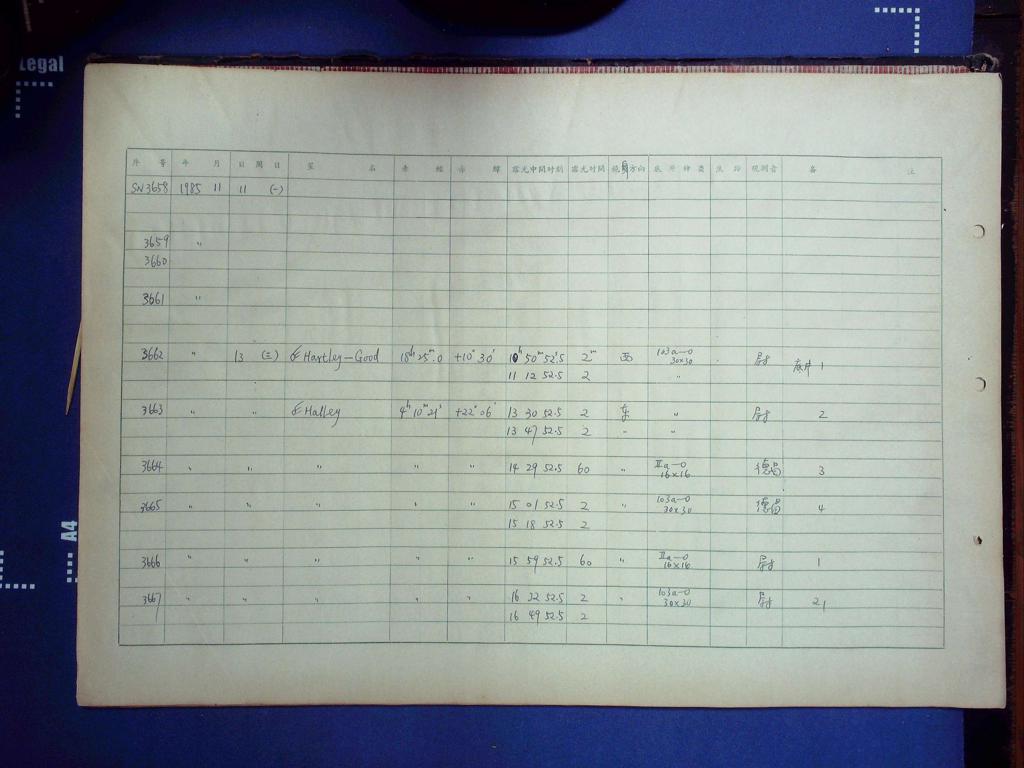 Legal
A4
序 号 年 月 日 周 日 星 名 赤 经 赤 纬 露光中间时刻 露光时间 镜身方向 底 片 种 类 观测者 备 注
SN3658 1985 11 11 (一)
3659 "
3660
3661 "
3662 " 13 (三) Hartley-Good 18h 25m.0 +10° 30' 10h 50m 52s.5 2m 西 103a-O 30×30 底片 1
11 12 52.5 2 "
3663 " " Halley 4h 10m 21s +22° 06' 13 30 52.5 2 东 " 2
13 47 52.5 2 " "
3664 " " " " " 14 29 52.5 60 " IIa-O 16×16 德昌 3
3665 " " " " " 15 01 52.5 2 " 103a-O 30×30 德昌 4
15 18 52.5 2
3666 " " " " " 15 59 52.5 60 " IIa-O 16×16 1
3667 " " " " " 16 32 52.5 2 " 103a-O 30×30 21
16 49 52.5 2